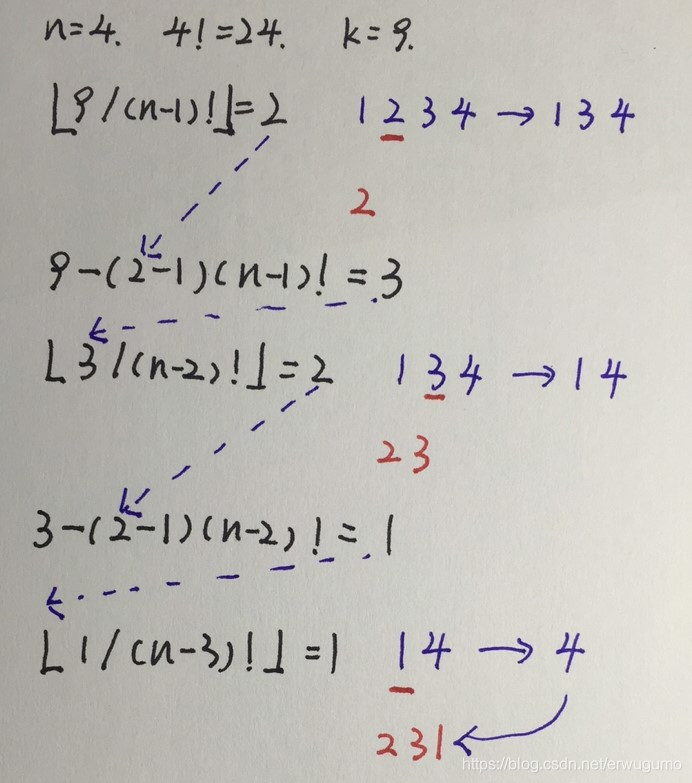 n=4. 4!=24. k=9.
⌊9/(n-1)!⌋=2 1234→134
2
9-(2-1)(n-1)!=3
⌊3/(n-2)!⌋=2 134→14
23
3-(2-1)(n-2)!=1
⌊1/(n-3)!⌋=1 14→4
231
https://blog.csdn.net/erwugumo